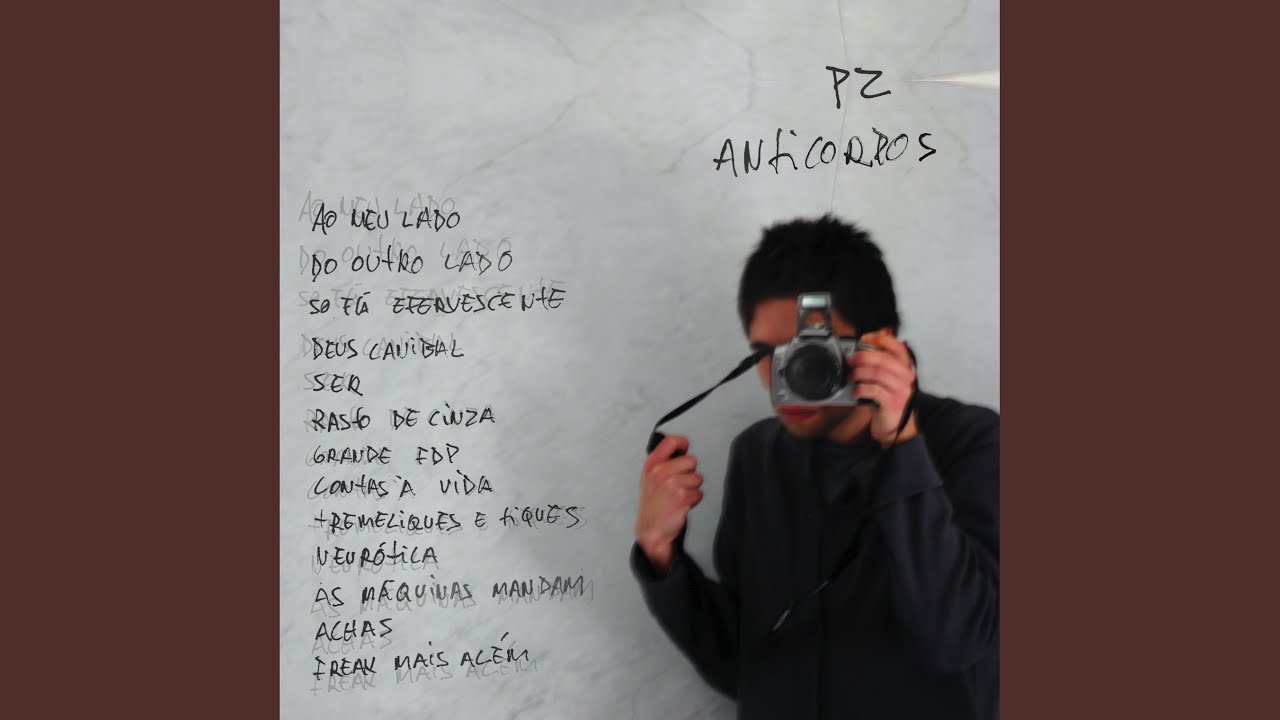 PZ
ANTICORPOS
AO MEU LADO
DO OUTRO LADO
SOFÁ EFERVESCENTE
DEUS CANIBAL
SER
RASTO DE CINZA
GRANDE FDP
CONTAS À VIDA
TREMELIQUES E TIQUES
NEURÓTICA
AS MÁQUINAS MANDAM
ACHAS
FREAK MAIS ALÉM